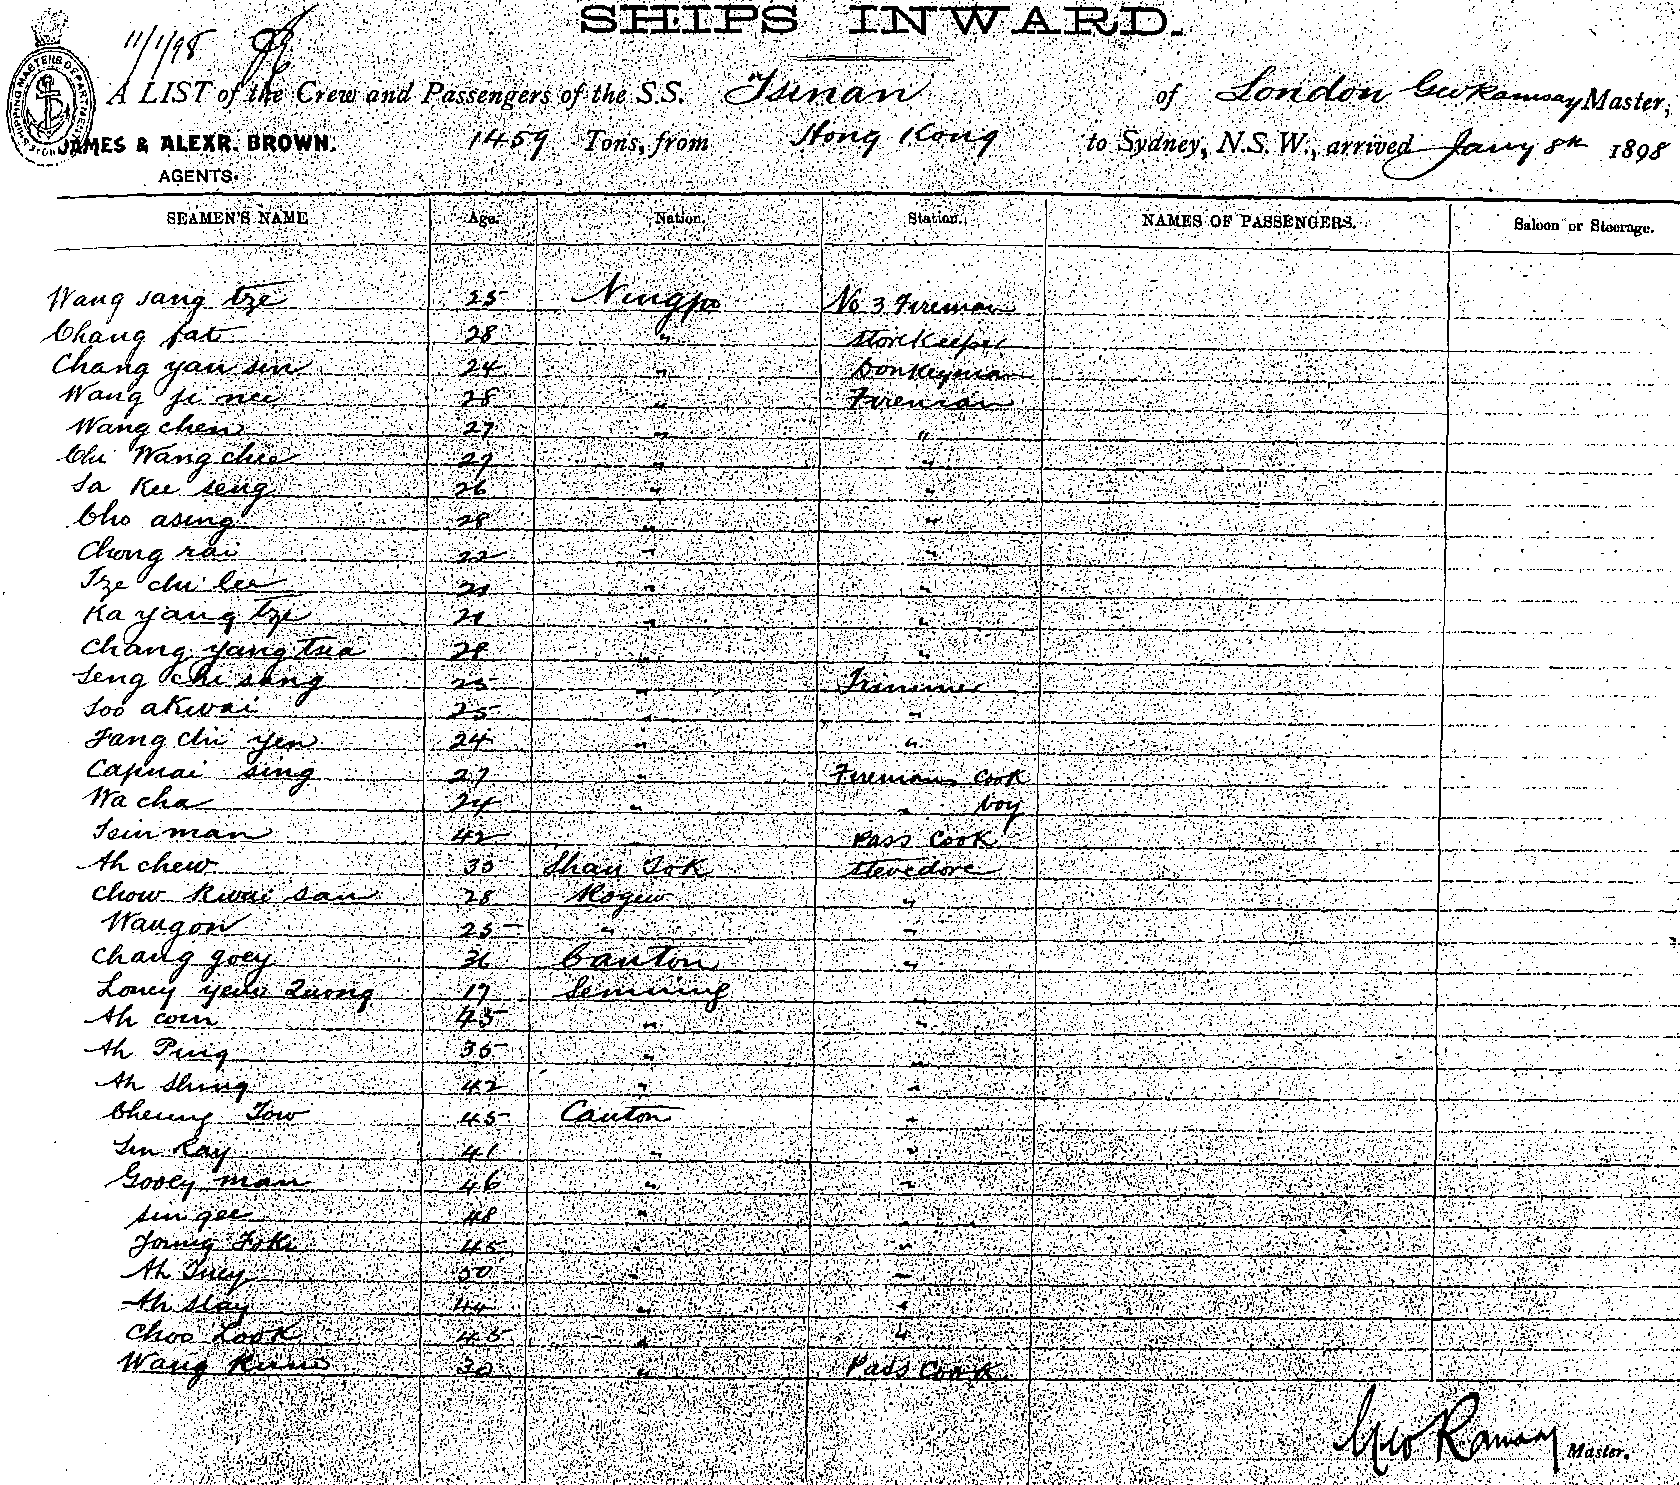 SHIPS INWARD.
11/1/98
A LIST of the Crew and Passengers of the S.S. Tsinan of London Geo Ramsay Master,
JAMES & ALEXR. BROWN. 1459 Tons, from Hong Kong to Sydney, N.S.W., arrived Jany 8th 1898
AGENTS.
SEAMEN'S NAME Age. Nation. Station. NAMES OF PASSENGERS. Saloon or Steerage.
Wang sang tze 25 Ningpo No 3 Fireman
Chang fat 28 " Storekeeper
Chang yau sin 24 " Donkeyman
Wang ji nee 28 " Fireman
Wang chen 27 " "
Chi Wang chee 27 " "
Sa Kee seng 26 " "
Cho asing 28 " "
Chong rai 22 " "
Tze chi lee 21 " "
Ka yang tze 21 " "
Chang yang tua 28 " "
Seng chi sang 25 " Trimmer
Soo akwai 25 " "
Fang chi yen 24 " "
Capuai sing 27 " Firemans Cook
Wa cha 24 " " boy
Tsin man 42 Pass Cook
Ah chew 30 Shau Tok Stevedore
Chow Kwai san 28 "
Waugon 25 " "
Chang goey 36 Canton "
Loucy yew Quong 17 "
Ah coin 45 " "
Ah Ping 35 " "
Ah Shing 42 " "
Cheung Tow 45 Canton "
Lin Kay 41 " "
Gooey man 46 " "
Sin gee 48 " "
Young Foke 45 " "
Ah Tuey 50 " "
Ah Slay 44 " "
Choo Look 45 " "
Wang Kum 30 " Pass Cook
Geo Ramsay Master.